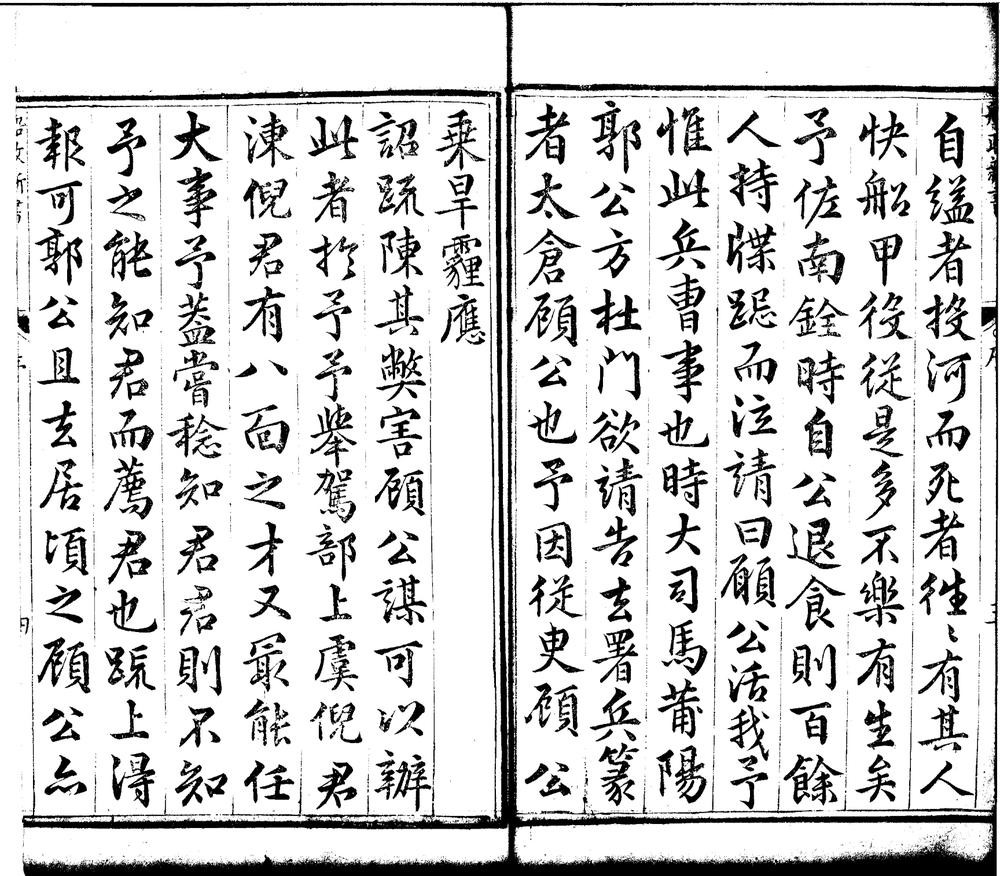 自縊者投河而死者徃〻有其人
快船甲役從是多不樂有生矣
予佐南銓時自公退食則百餘
人持牒跽而泣請曰願公活我予
惟此兵曹事也時大司馬莆陽
郭公方杜門欲請告去署兵篆
者太倉顧公也予因從臾顧公
乗旱霾應
詔疏陳其弊害顧公謀可以辦
此者扵予予舉駕部上虞倪君
涷倪君有八面之才又最能任
大事予蓋嘗稔知君君則不知
予之能知君而薦君也疏上得
報可郭公且去居頃之顧公亦